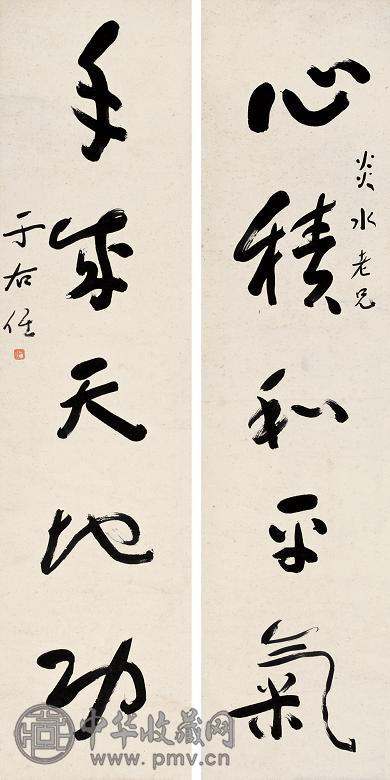 心積和平氣
炎水老兄
手成天地功
于右任
中华收藏网
www.pmv.cn